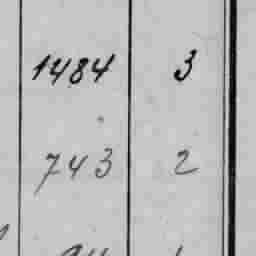 1484 3
743 2